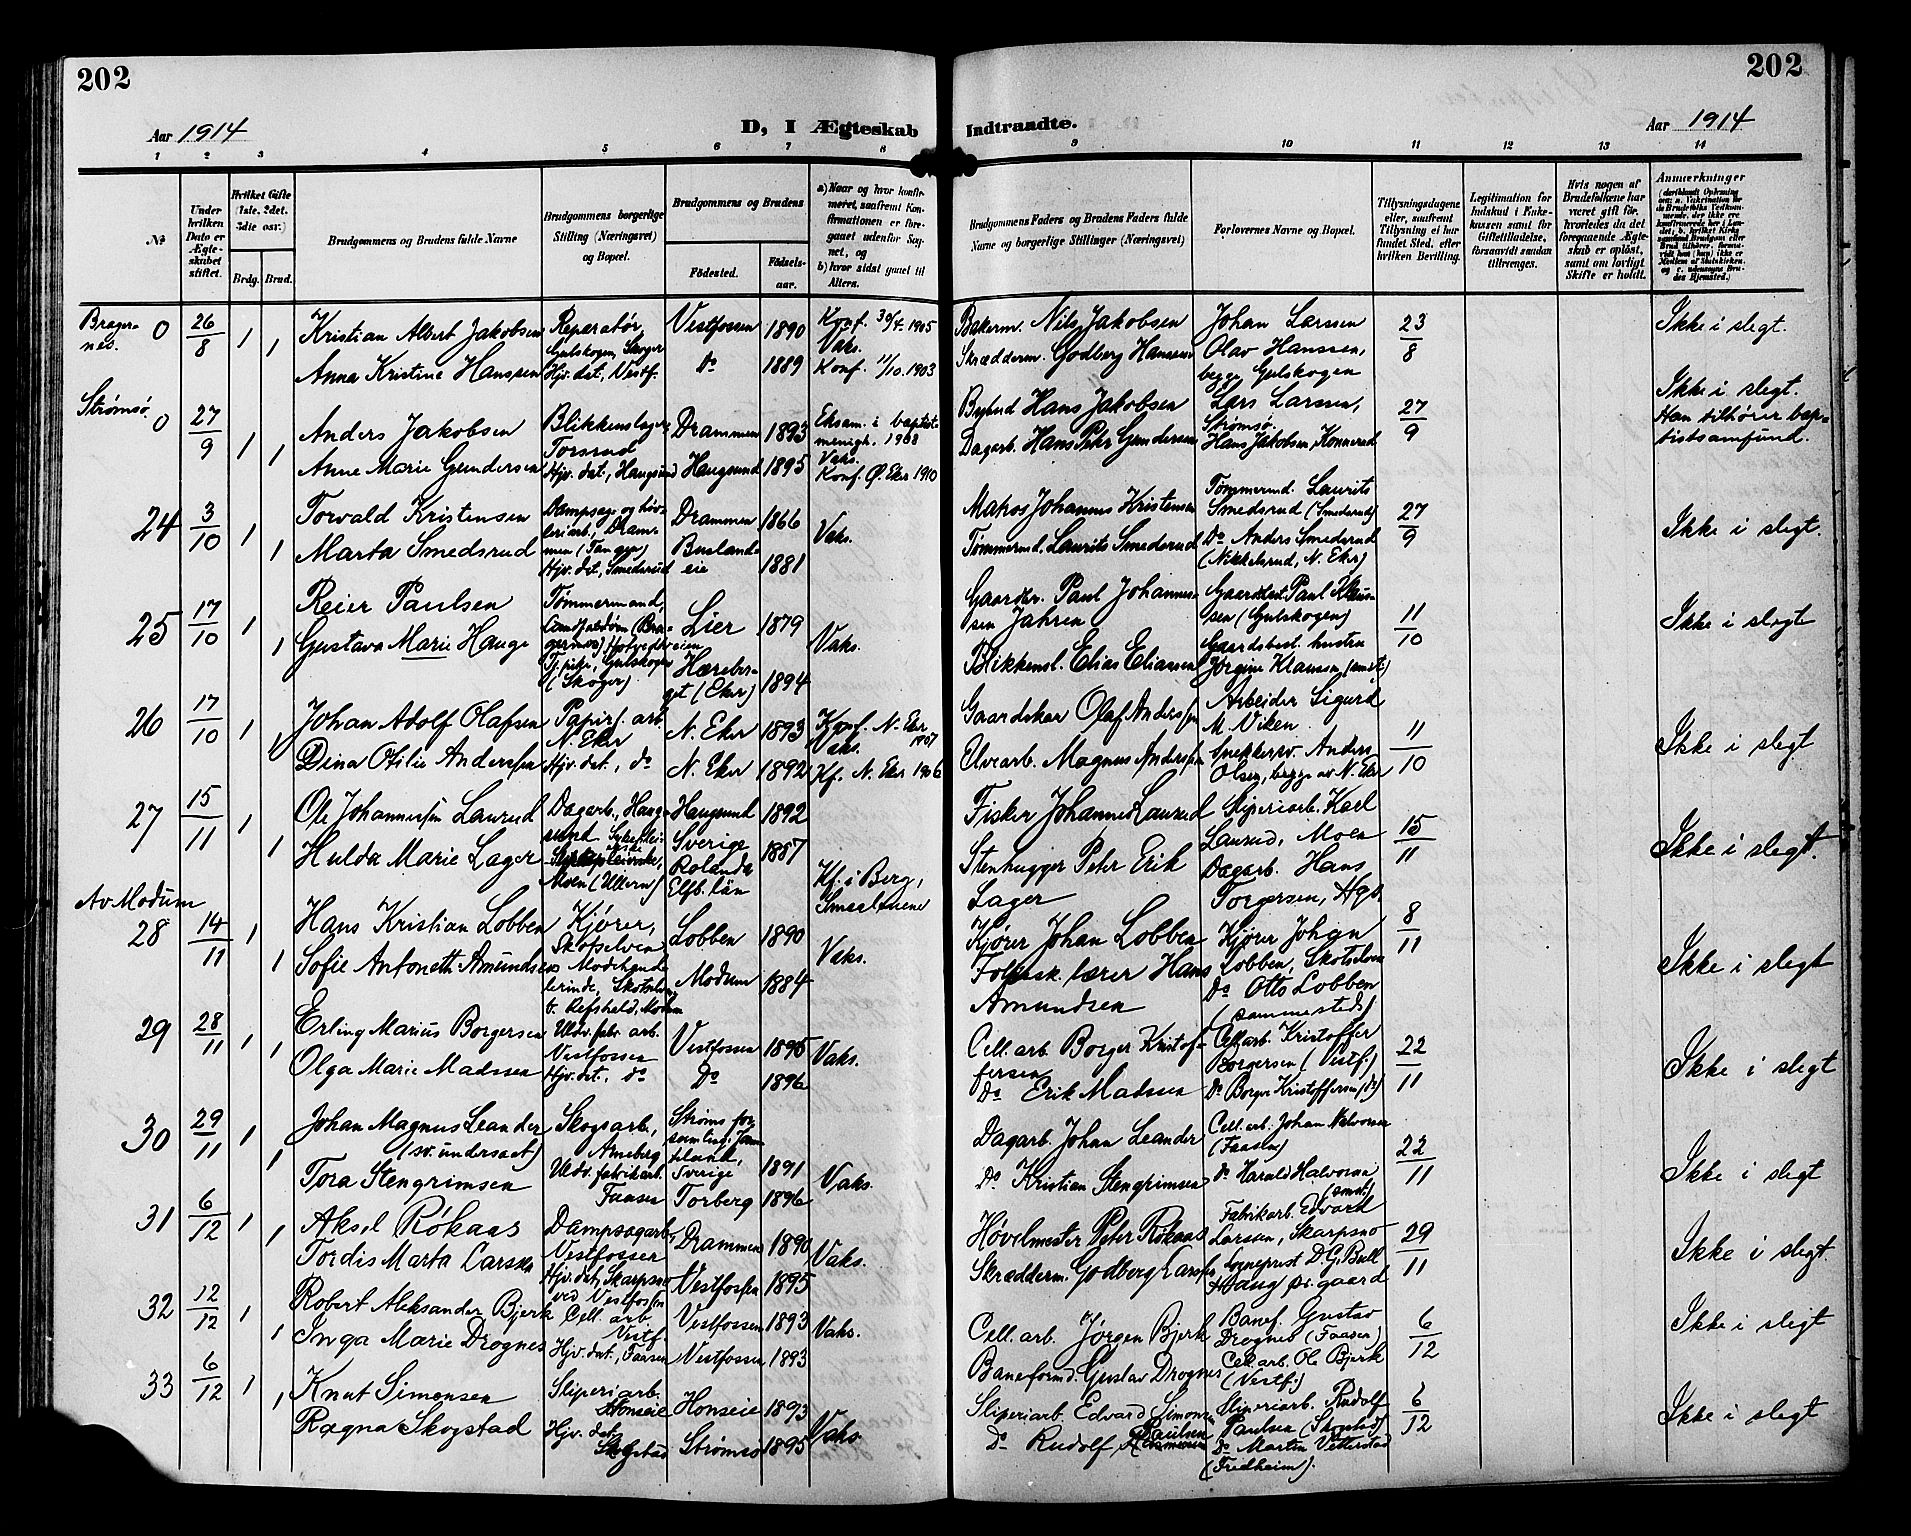 202
202
Aar 1914
D, I Ægteskab
Indtraadte.
Aar 1914
1 2 3 4 5 6 7 8
9 10 11 12 13 14
No
Under hvilken Dato er Ægteskabet stiftet.
Hvilket Gifte (1ste, 2det, 3die osv.)
Brdg. Brud.
Brudgommens og Brudens fulde Navne
Brudgommens borgerlige Stilling (Næringsvei) og Bopæl.
Brudgommens og Brudens
Fødested.
Fødselsaar.
a) Naar og hvor konfirmeret, saafremt Konfirmationen er foregaaet udenfor Sognet, og
b) hvor sidst gaaet til Alters.
Brudgommens Faders og Brudens Faders fulde Navne og borgerlige Stillinger (Næringsvei)
Forlovernes Navne og Bopæl.
Tillysningsdagene eller, saafremt Tillysning ei har fundet Sted, efter hvilken Bevilling.
Legitimation for Indskud i Enkekassen samt for Giftetilladelse, forsaavidt saadan tiltrænges.
Hvis nogen af Brudefolkene har været gift før, hvorledes da det foregaaende Ægteskab er opløst, samt om lovligt Skifte er holdt.
Anmerkninger
Bragernes. 0 26/8 1 1
Kristian Albert Jakobsen Reparatør, Gulskogen, Skoger Vestfossen 1890 Konf. 30/4. 1905 Vaks.
Anna Kristine Hanssen Hjv. dat., Vestf. Do 1889 Konf. 11/10. 1903
Bakerm. Nils Jakobsen Johan Larssen 23/8 Ikke i slegt.
Skrædderm. Godberg Hanssen Olav Hanssen, begge Gulskogen
Strømsø. 0 27/9 1 1
Anders Jakobsen Blikkenslager, Torsrud Drammen 1893 Eksam. i baptistmenigh. 1908 Vaks.
Anne Marie Gundersen Hjv. dat., Haugsund Haugsund 1895 Konf. Ø. Eker 1910
Bybud Hans Jakobsen Lars Larssen, Strømsø. 27/9 Ikke i slegt. Han tilhører baptistsamfund.
Dagarb. Hans Petr Gundersen Hans Jakobsen, Konnerud
24 3/10 1 1
Torvald Kristensen Dampsag og høvleriarb., Drammen (Tangen) Drammen 1866 Vaks.
Marta Smedsrud Hjv. dat., Smedsrud Buslandseie 1881
Matros Johannes Kristensen Tømmermd. Laurits Smedsrud (Smedsrud) 27/9 Ikke i slegt.
Tømmermd. Laurits Smedsrud Do Anders Smedsrud (Nikkelsrud, N. Eker)
25 17/10 1 1
Reier Paulsen Tømmermand, Lier 1879 Vaks.
Gustava Marie Hauge Tj. pike, Gulskogen (Skoger) (Eker) 1894
Gaardbr. Paul Johannessen Jahren Gaardbest. Paul Klaussen (Gulskogen) 11/10 Ikke i slegt
Blikkensl. Elias Eliassen Gaardsbest. hustru Jørgine Klaussen
26 17/10 1 1
Johan Adolf Olafsen Papirf. arb. N. Eker N. Eker 1893 Konf. N. Eker 1907 Vaks.
Dina Otilie Anderssen Hjv. dat., do N. Eker 1892 Kf. N. Eker 1906
Gaardskar Olaf Anderssen Arbeider Sigurd M. Viken 11/10 Ikke i slegt
Elvearb. Magnus Anderssen Snekkersv. Anders Olsen, begge av N. Eker
27 15/11 1 1
Ole Johannessen Laurud Dagarb., Haugsund Haugsund 1892
Hulda Marie Lager Moen (Ullern) Sverige Rolanda Elfb. län 1887 Kf. i Berg, Smaalenene
Fisker Johannes Laurud Sliperiarb. Karl Laurud, Moen 15/11 Ikke i slegt.
Stenhugger Peter Erik Lager Dagarb. Hans Torgersen, Hgs.
Av Modum
28 14/11 1 1
Hans Kristian Lobben Kjører, Skotselven Lobben 1890 Vaks.
Sofie Antonette Amundsen Modehandlerinde, Skotselven Modum 1884
Kjører Johan Lobben Kjører Johan Lobben, Skotselven 8/11 Ikke i slegt
Folkesk. lærer Hans Amundsen Do Otto Lobben (sammesteds)
29 28/11 1 1
Erling Marius Borgersen Uldv. fabr. arb. Vestfossen Vestfossen 1895 Vaks.
Olga Marie Madssen Hjv. dat., do Do 1896
Cell. arb. Borger Kristoffersen Cell. arb. Kristoffer Borgersen (Vestf.) 22/11 Ikke i slegt
Do Erik Madssen Do Borger Kristoffersen (do)
30 29/11 1 1
Johan Magnus Leander (sv. undersaat) Skogsarb., Arneberg Strøms forsamling, Jämtland, Sverige 1891 Vaks.
Tora Stengrimsen Uldv. fabrikarb. Faasen Torberg 1896
Dagarb. Johan Leander Cell. arb. Johan Halvorsen (Faasen) 22/11 Ikke i slegt
Do Kristian Stengrimsen Do Harald Halvorsen
31 6/12 1 1
Aksel Røkaas Dampsagarb., Vestfossen Drammen 1890 Vaks.
Tordis Marta Larsen Hjv. dat., Skarpsno ved Vestfossen Vestfossen 1895
Høvelmester Peter Røkaas Fabrikarb. Edvard Larsen, Skarpsno 29/11 Ikke i slegt
Skrædderm. Godberg Larssen Sogneprest D. G. Bull Haug pr.gaard
32 12/12 1 1
Robert Aleksander Bjerk Cell. arb. Vestf. Vestfossen 1893 Vaks.
Inga Marie Drognes Hjv. dat., Faasen Vestfossen 1893
Cell. arb. Jørgen Bjerk Banef. Gustav Drognes (Faasen) 6/12 Ikke i slegt
Baneformd. Gustav Drognes Cell. arb. Ole Bjerk (Vestf.)
33 6/12 1 1
Knut Simonsen Sliperiarb. Honseie Honseie 1893 Vaks.
Ragna Skogstad Hjv. dat., Skogstad Strømsø 1895
Sliperiarb. Edvard Simonsen Sliperiarb. Rudolf Paulsen (Skogstad) 6/12 Ikke i slegt
Do Rudolf Paulsen Do Martin Vetterstad (Fredheim).